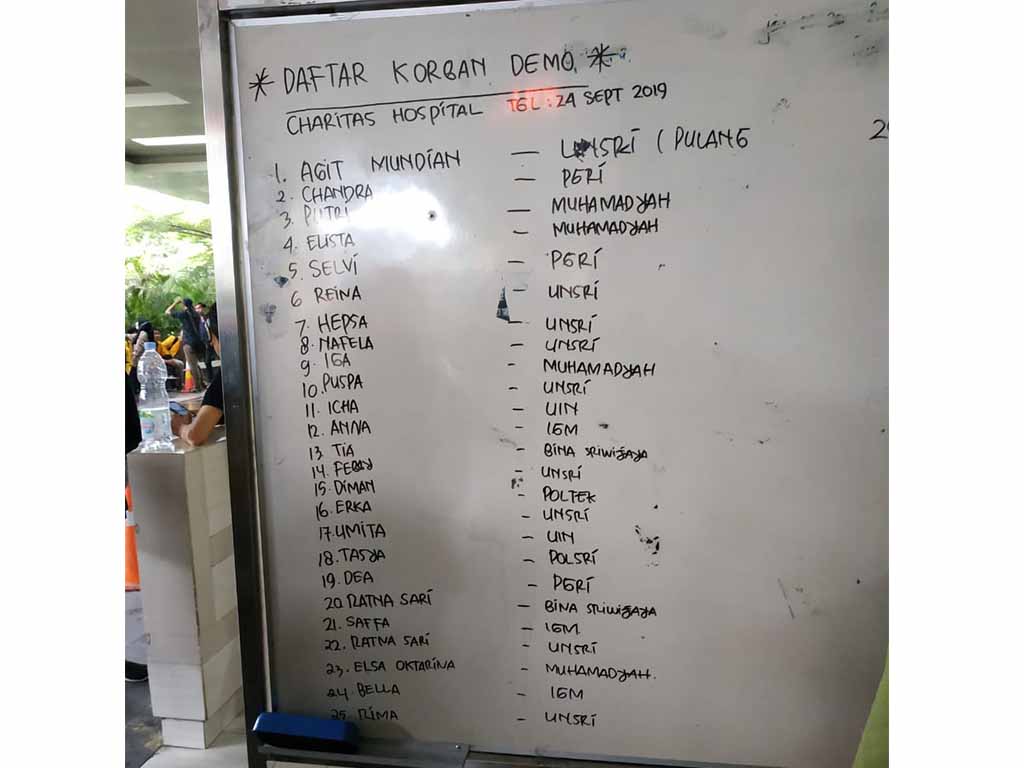 * DAFTAR KORBAN DEMO *
CHARITAS HOSPITAL TGL : 24 SEPT 2019
1. AGIT MUNDIAN — UNSRI ( PULANG
2. CHANDRA — PERI
3. PUTRI — MUHAMADYAH
4. ELISTA — MUHAMADYAH
5. SELVI — PERI
6 REINA — UNSRI
7. HEPSA — UNSRI
8. NAFELA — UNSRI
9. IGA — MUHAMADYAH
10. PUSPA — UNSRI
11. ICHA — UIN
12. ANNA — IGM
13. TIA — BINA SRIWIJAYA
14. FEBBY — UNSRI
15. DIMAN — POLTEK
16. ERKA — UNSRI
17. UMITA — UIN
18. TASYA — POLSRI
19. DEA — PERI
20. RATNA SARI — BINA SRIWIJAYA
21. SAFFA — IGM
22. RATNA SARI — UNSRI
23. ELSA OKTARINA — MUHAMADYAH.
24. BELLA — IGM
25. RIMA — UNSRI